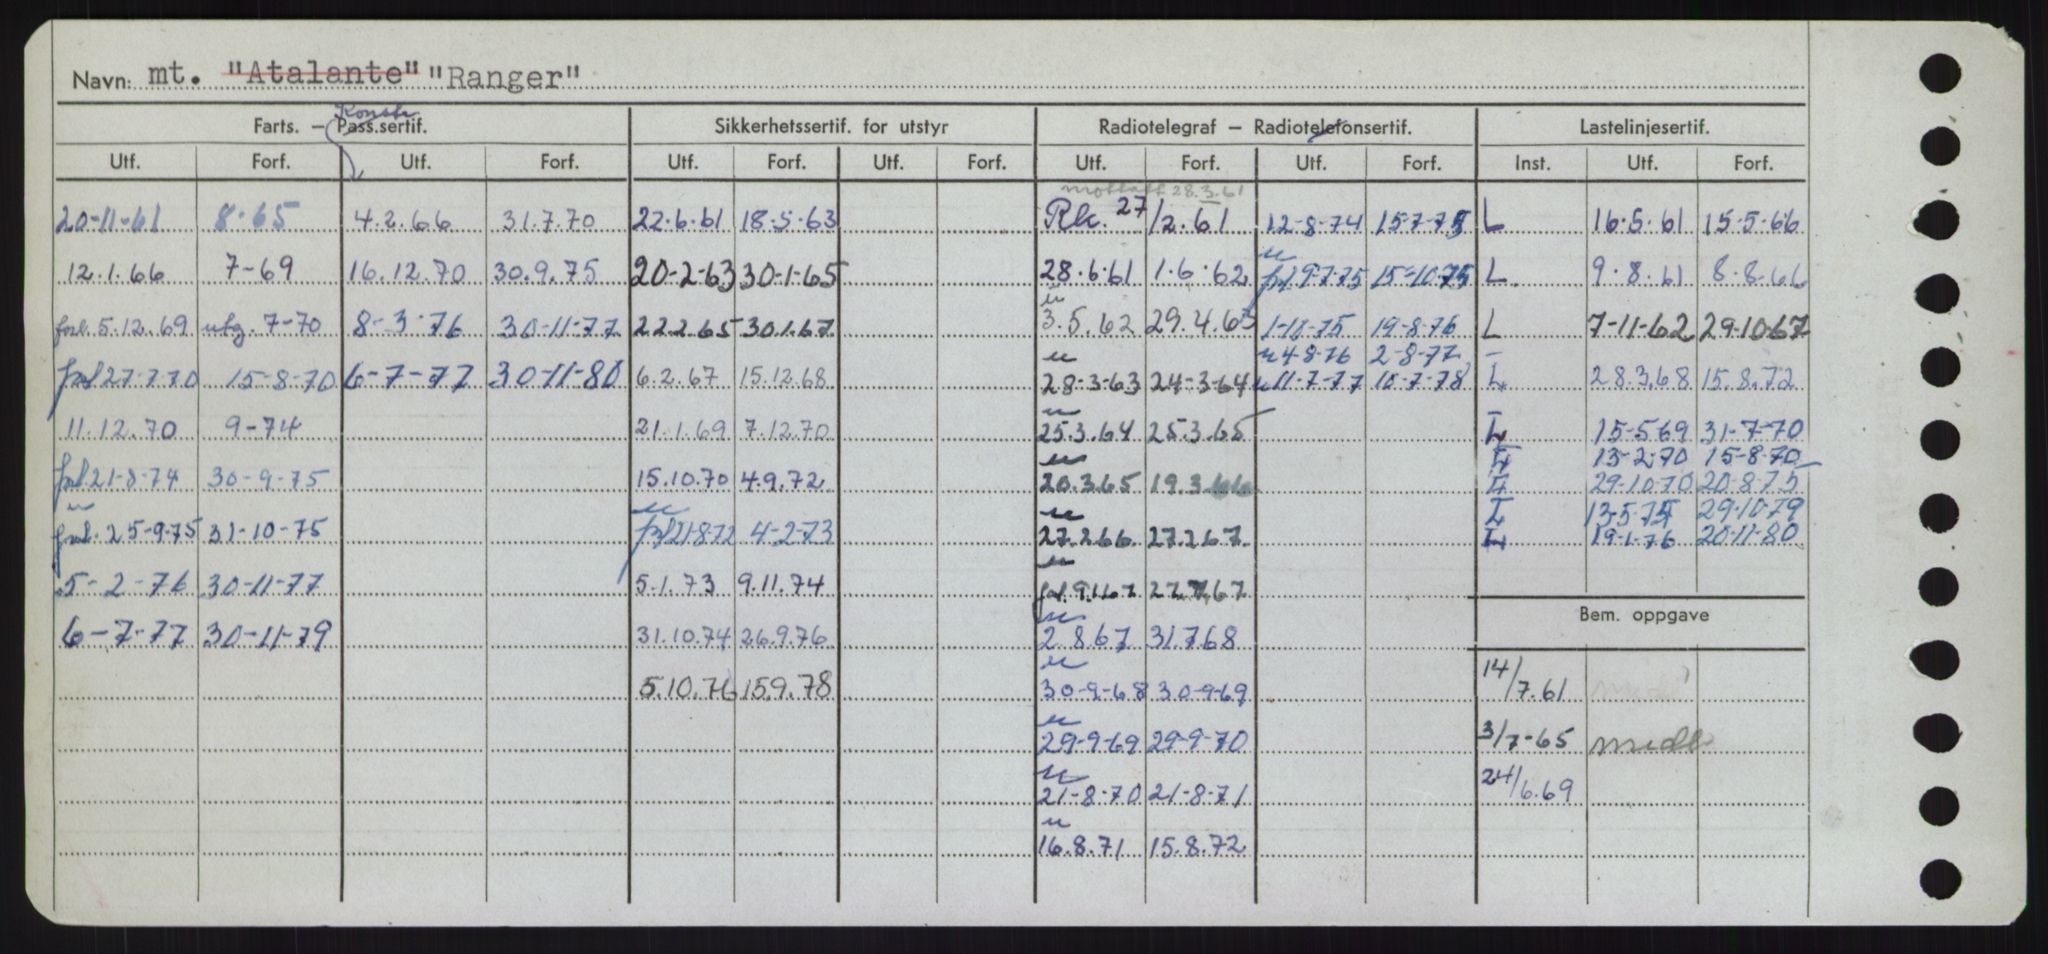 Navn: mt. "Atalante" "Ranger"
Konstr.
Farts. — Pass.sertif. Sikkerhetssertif. for utstyr Radiotelegraf — Radiotelefonsertif. Lastelinjesertif.
Utf. Forf. Utf. Forf. Utf. Forf. Utf. Forf. Utf. Forf. Utf. Forf. Inst. Utf. Forf.
mottatt 28.3.61
20-11-61 8-65 4.2.66 31.7.70 22.6.61 18.5.63 Rk. 27/2.61 12-8-74 15-7-75 L 16.5.61 15-5-66
12.1.66 7-69 16.12.70 30.9.75 20-2-63 30-1-65 28.6.61 1.6.62 frl 9-7-75 15-10-75 L 9.8.61 8.8.66
forl. 5.12.69 utg. 7-70 8-3-76 30-11-77 22.2.65 30.1.67 3.5.62 29.4.63 1-10-75 19-8-76 L 7-11-62 29-10-67
4-8-76 2-8-77
frl 27-7-70 15-8-70 6-7-77 30-11-80 6.2.67 15.12.68 28-3-63 24-3-64 11-7-77 10-7-78 L 28.3.68 15.8.72
11.12.70 9-74 21.1.69 7.12.70 25.3.64 25.3.65 L 15-5-69 31-7-70
L 13-2-70 15-8-70
frl. 21-8-74 30-9-75 15.10.70 4.9.72 20.3.65 19.3.66 L 29-10-70 20-8-75
L 13-5-75 29-10-79
frl. 25-9-75 31-10-75 frl 21-8-72 4-2-73 27.2.66 27.2.67 L 19-1-76 20-11-80
5-2-76 30-11-77 5.1.73 9.11.74 27.7.67
Bem. oppgave
6-7-77 30-11-79 31.10.74 26.9.76 2.8.67 31.7.68
5.10.76 15.9.78 30-9-68 30-9-69 14/7.61
29-9-69 29-9-70 3/7-65 midl
21-8-70 21-8-71 24/6.69
16.8.71 15.8.72